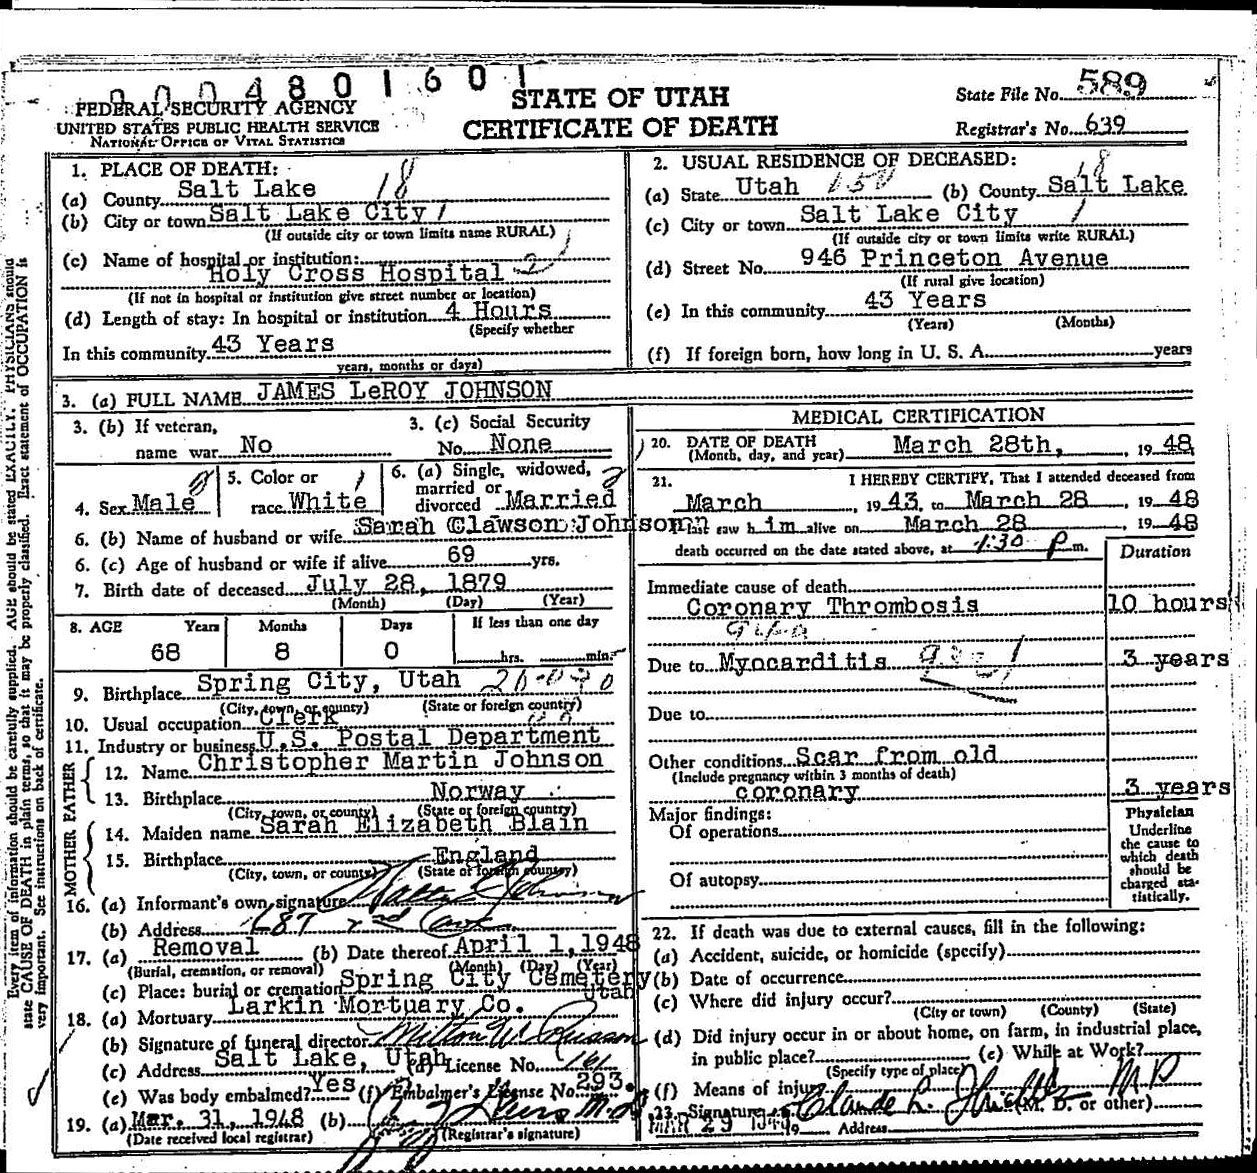 0004801601
FEDERAL SECURITY AGENCY
UNITED STATES PUBLIC HEALTH SERVICE
NATIONAL OFFICE OF VITAL STATISTICS
STATE OF UTAH
CERTIFICATE OF DEATH
State File No. 589
Registrar's No. 639
1. PLACE OF DEATH:
(a) County Salt Lake 18
(b) City or town Salt Lake City 1
(If outside city or town limits name RURAL)
(c) Name of hospital or institution:
Holy Cross Hospital 2
(If not in hospital or institution give street number or location)
(d) Length of stay: In hospital or institution 4 Hours
(Specify whether
In this community 43 Years
years, months or days)
2. USUAL RESIDENCE OF DECEASED:
(a) State Utah (b) County Salt Lake 18
(c) City or town Salt Lake City 1
(If outside city or town limits write RURAL)
(d) Street No. 946 Princeton Avenue
(If rural give location)
(e) In this community 43 Years
(Years) (Months)
(f) If foreign born, how long in U. S. A. years
3. (a) FULL NAME JAMES LeROY JOHNSON
3. (b) If veteran, name war No
3. (c) Social Security No. None
4. Sex Male
5. Color or race White
6. (a) Single, widowed, married or divorced Married
6. (b) Name of husband or wife Sarah Clawson Johnson
6. (c) Age of husband or wife if alive 69 yrs.
7. Birth date of deceased July 28, 1879
(Month) (Day) (Year)
8. AGE Years Months Days If less than one day
68 8 0 hrs. min.
9. Birthplace Spring City, Utah
(City, town, or county) (State or foreign country)
10. Usual occupation Clerk
11. Industry or business U.S. Postal Department
FATHER
12. Name Christopher Martin Johnson
13. Birthplace Norway
(City, town, or county) (State or foreign country)
MOTHER
14. Maiden name Sarah Elizabeth Blain
15. Birthplace England
(City, town, or county) (State or foreign country)
16. (a) Informant's own signature
(b) Address 687 2nd
17. (a) Removal (b) Date thereof April 1, 1948
(Burial, cremation, or removal) (Month) (Day) (Year)
(c) Place: burial or cremation Spring City Cemetery
Utah
18. (a) Mortuary Larkin Mortuary Co.
(b) Signature of funeral director Milton W.
(c) Address Salt Lake, Utah (d) License No. 161
(e) Was body embalmed? Yes (f) Embalmer's License No. 293.
19. (a) Mar. 31, 1948 (b)
(Date received local registrar) (Registrar's signature)
MEDICAL CERTIFICATION
20. DATE OF DEATH March 28th, 1948
(Month, day, and year)
21. I HEREBY CERTIFY, That I attended deceased from
March, 1943, to March 28, 1948
I last saw him alive on March 28, 1948
death occurred on the date stated above, at 1:30 P m.
Duration
Immediate cause of death
Coronary Thrombosis 10 hours
Due to Myocarditis 3 years
Due to
Other conditions Scar from old
(Include pregnancy within 3 months of death)
coronary 3 years
Major findings:
Of operations
Of autopsy
Physician
Underline
the cause to
which death
should be
charged sta-
tistically.
22. If death was due to external causes, fill in the following:
(a) Accident, suicide, or homicide (specify)
(b) Date of occurrence
(c) Where did injury occur?
(City or town) (County) (State)
(d) Did injury occur in or about home, on farm, in industrial place,
in public place? (e) While at Work?
(Specify type of place)
(f) Means of injury
23. Signature Claude L. M D (M. D. or other)
MAR 29 1948 Address
Every item of information should be carefully supplied. AGE should be stated EXACTLY. PHYSICIANS should
state CAUSE OF DEATH in plain terms, so that it may be properly classified. Exact statement of OCCUPATION is
very important. See instructions on back of certificate.